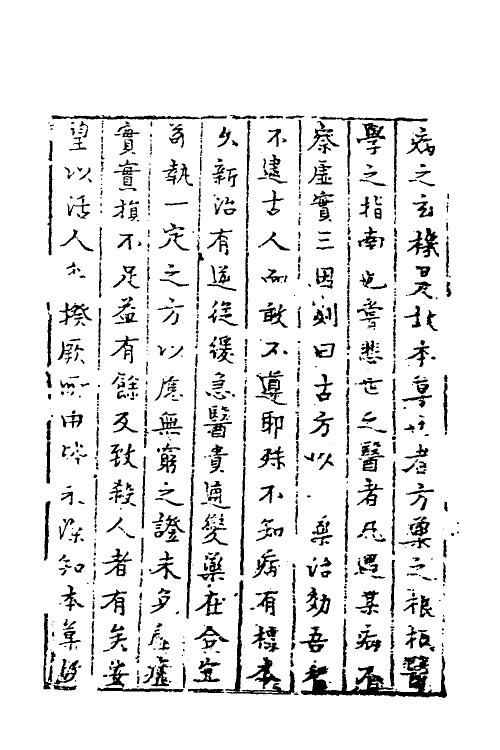 病之玄機是故本草者方藥之根柢醫
學之指南也嘗悲世之醫者凡遇某病不
察虛實三因則曰古方以藥治効吾智
不逮古人而敢不遵耶殊不知病有標本
久新治有逆從緩急醫貴通變藥在合宜
苟執一定之方以應無窮之證未免虛虛
實實損不足益有餘反致殺人者有矣安
望以活人哉揆厥所由皆不深知本草